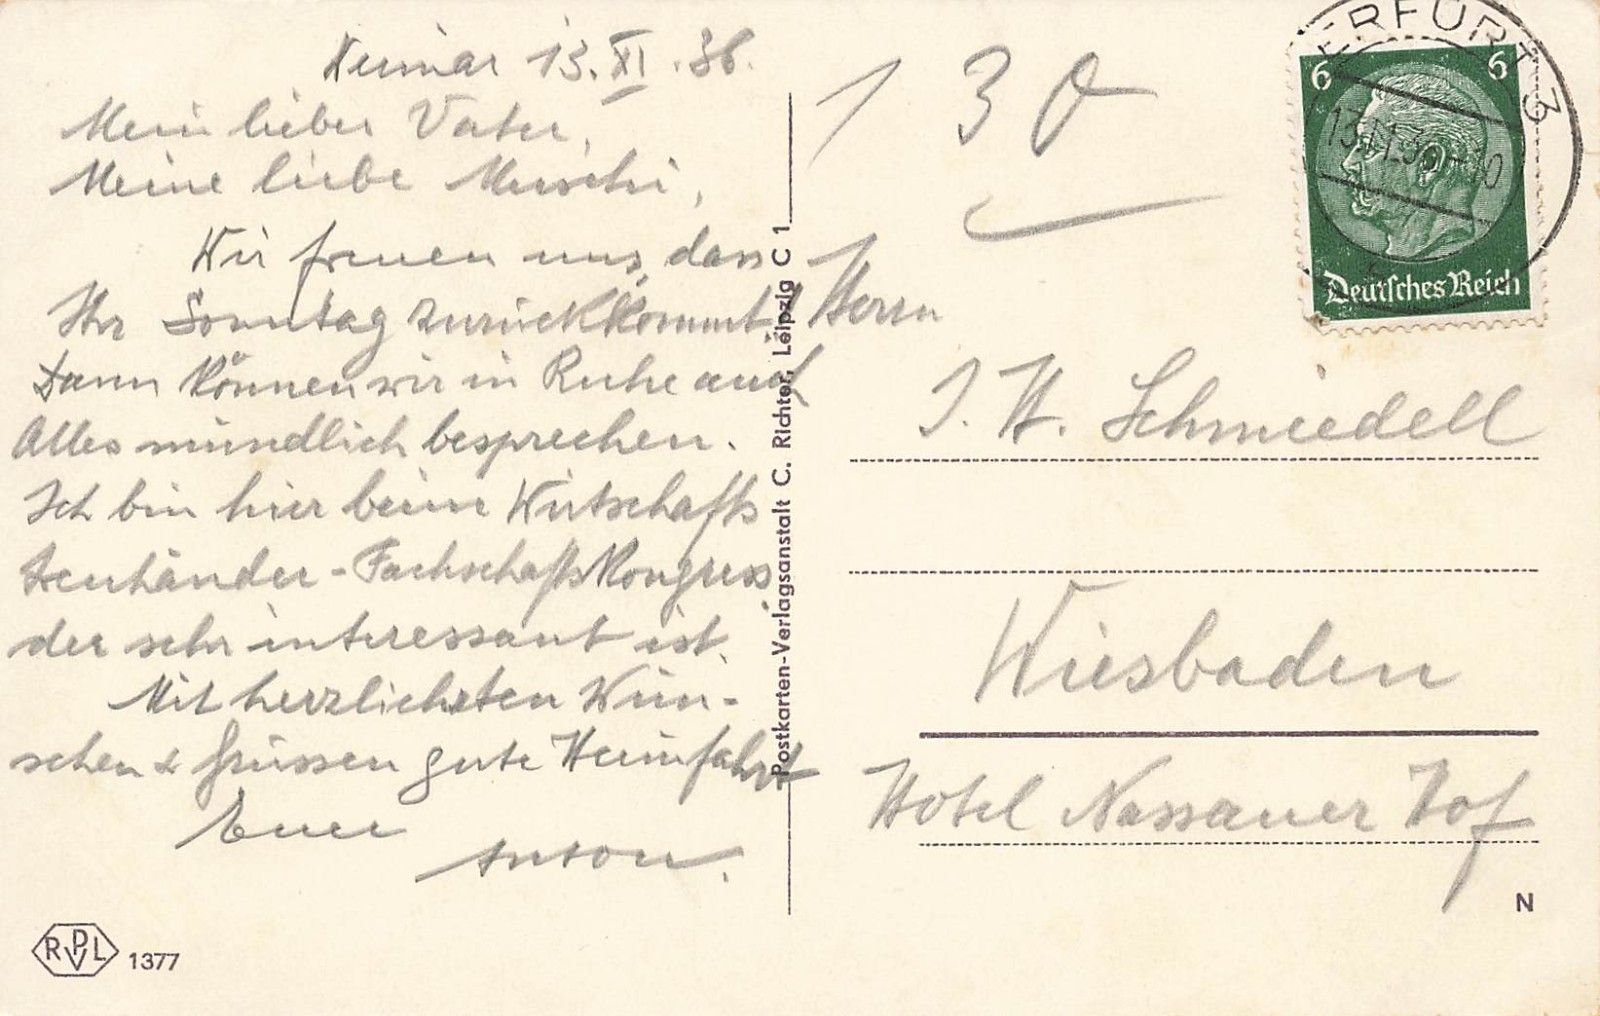 Weimar 13. XI. 36.
Mein lieber Vater,
Meine liebe Muschi,
Wir freuen uns, dass
Ihr Sonntag zurückkommt.
Dann können wir in Ruhe auch
Alles mündlich besprechen.
Ich bin hier beim Wirtschafts
treuhänder-Fachschaftskongress
der sehr interessant ist.
Mit herzlichsten Wün-
schen & Grüssen gute Heimfahrt
Euer
Anton.
RVPL 1377
Postkarten-Verlagsanstalt C. Richter, Leipzig C 1
130
ERFURT 3
13.11.36-10
6 6
Deutsches Reich
Herrn
J. H. Schmiedell
Wiesbaden
Hotel Nassauer Hof
N